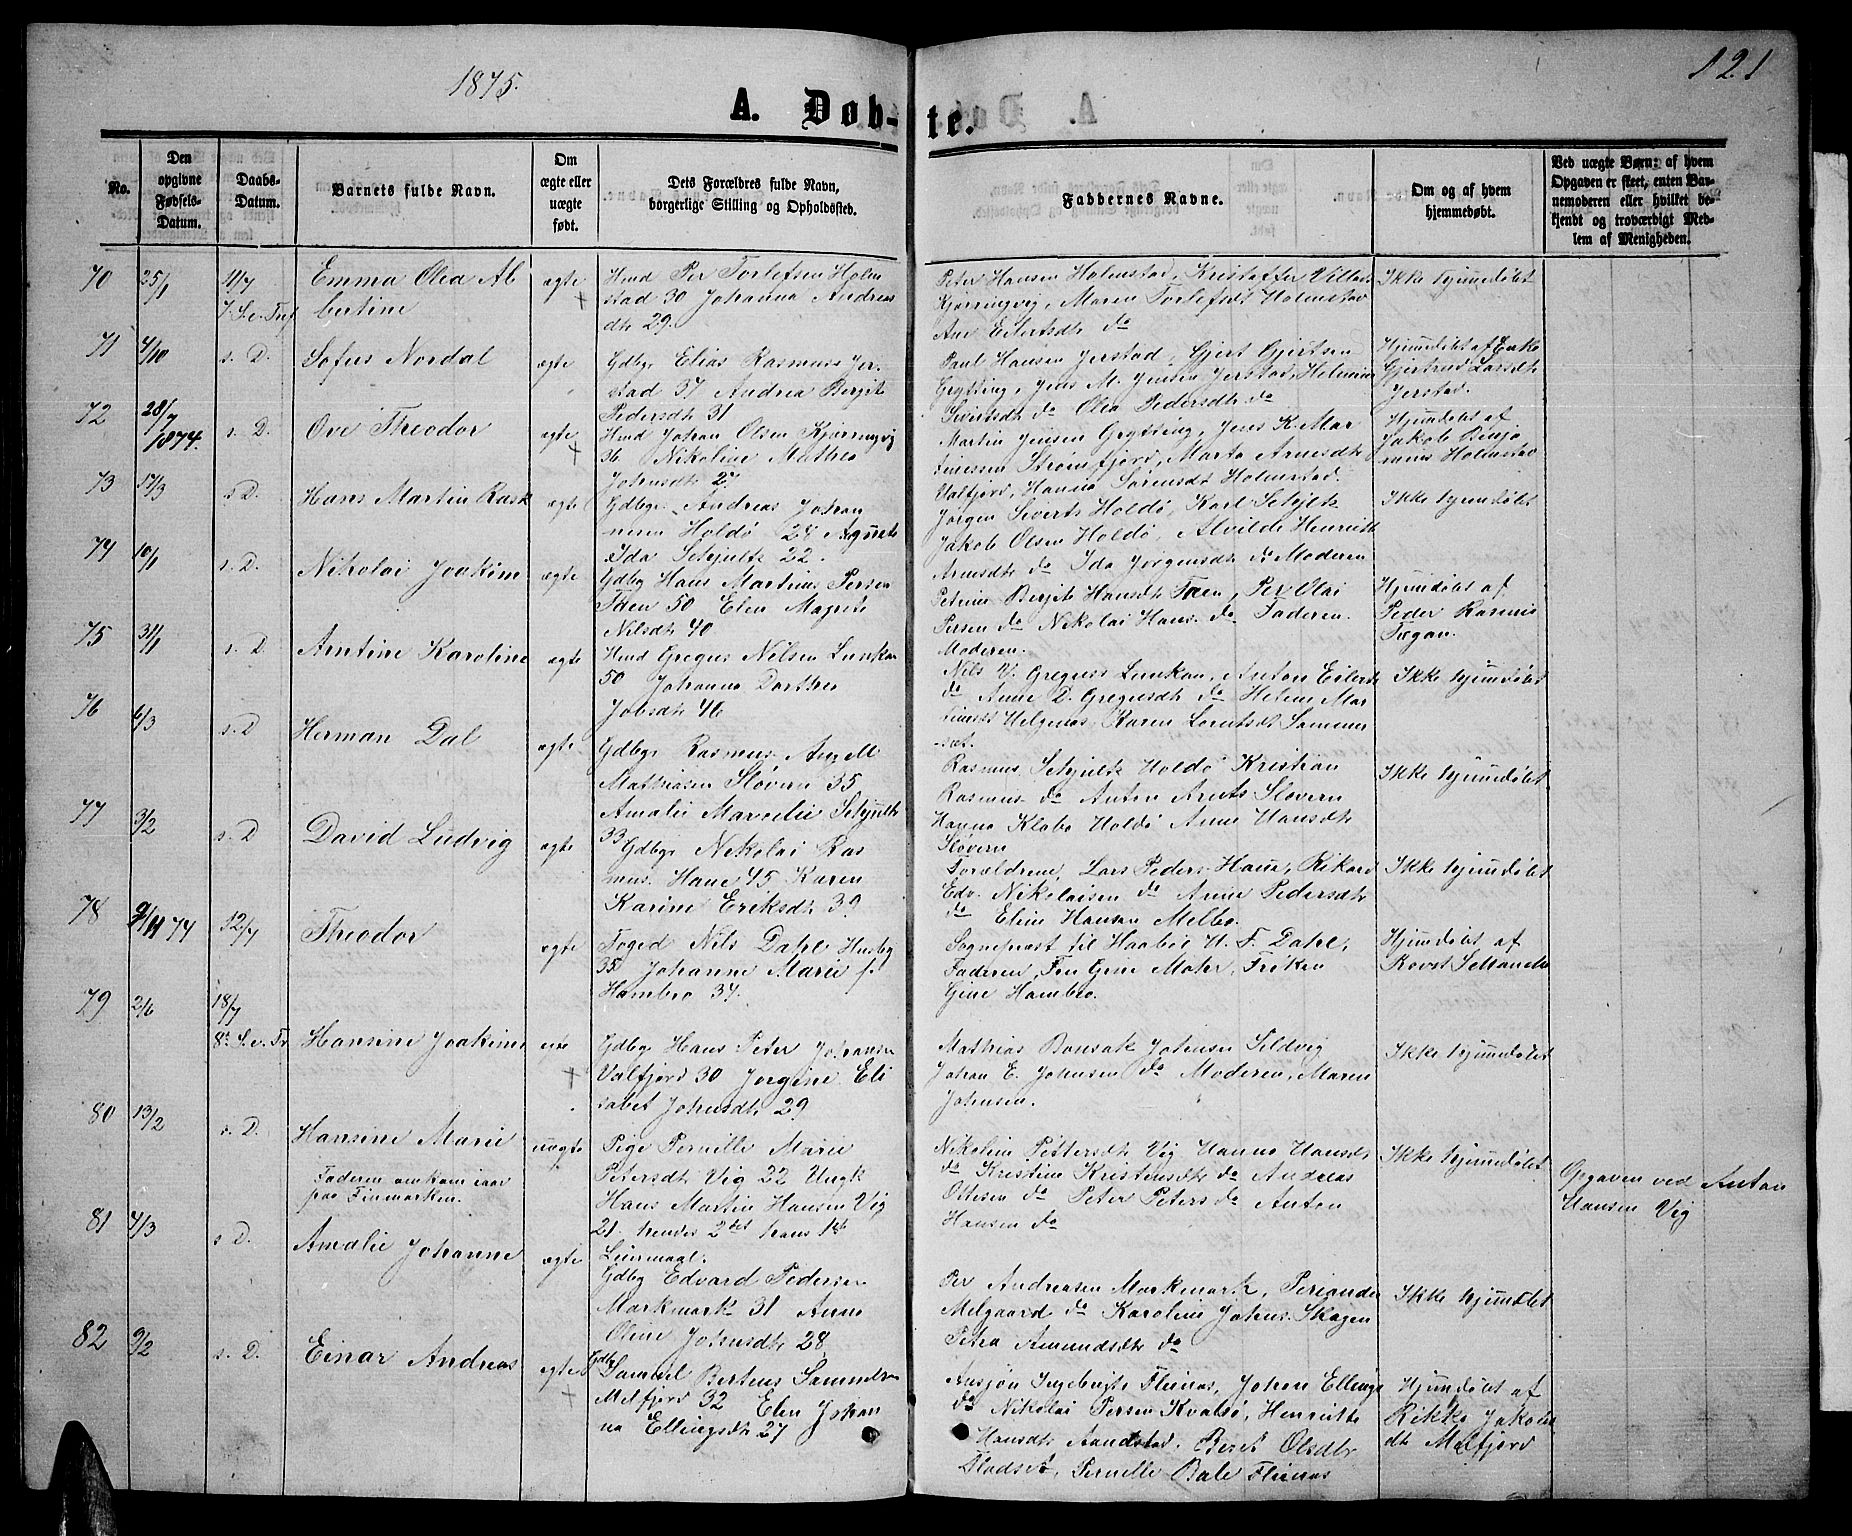 1875.
121
A. Døb-te.
No.
Den
opgivne
Fødsels-
Datum.
Daabs-
Datum.
Barnets fulde Navn.
Om
ægte eller
uægte
født.
Dets Forældres fulde Navn,
borgerlige Stilling og Opholdssted.
Faddernes Navne.
Om og af hvem
hjemmedøbt.
Ved uægte Børn: af hvem
Opgaven er skeet, enten Bar-
nemoderen eller hvilket be-
kjendt og troværdigt Med-
lem af Menigheden.
70
25/1
11/7
7 S. e. Tref
Emma Olea Al
bertine
ægte
Hmd Per Torlefsen Holm
stad 30 Johanna Andreas
dtr 29.
Peter Hansen Holmstad, Kristoffer Villads
Kjørringvig, Maren Torlefsdt Holmstad
Ane Eilertsdtr do
Ikke hjemmedøbt
71
4/10
s. D.
Sofus Nordal
ægte
Gdbgr Elias Rasmuss Jer
stad 37 Andrea Bergit
Pedersdtr 31
Paul Hansen Jerstad Gjert Gjertsen
Grytting, Jens M. Jensen Jerstad, Helmine
Sivertsdtr do Olea Pedersdtr do
Hjemmedøbt af Enke
Gjertrud Larsdtr
Jerstad.
72
28/7
1874.
s. D.
Ove Theodor
ægte
Hmd Johan Olsen Kjørringvig
36 Nikoline Mathea
Johnsdtr 27
Martin Jensen Grytting, Jens K. Mar
tinessen Strømfjord, Marta Arnesdtr
Valfjord, Hanna Sørensdtr Holmstad.
Hjemmedøbt af
Jakob Benja
mins Holmstad
73
17/3
s. D.
Hans Martin Rask
ægte
Gdbgr Andreas Johan
nesen Holdø 28 Augusta
Ida Schjultz 22.
Jørgen Siverts Holdø, Karl Schjelz
Jakob Olsen Holdø, Alvilde Henriette
Arnesdtr do Ida Jørgensdtr do Moderen
Ikke hjemmedøbt
74
10/1
s. D.
Nikolai Joakim
ægte
Gdbg Hans Martinus Persen
Taen 50 Elen Magrete
Nilsdtr 40
Petrine Bergit Hansdtr Taen, Per Olai
Persen do Nikolai Hans. do Faderen.
Moderen.
Hjemmedøbt af
Peder Rasmus
Tregan.
75
31/1
s. D
Arntine Karoline
ægte
Hmd Gregus Nilsen Lunkan
50 Johanna Dorthea
Jobsdtr 46
Nils V. Greguss Lunkan, Anton Eilerts
do Anne D. Gregusdtr do Helene Mar
tinusdt Helgenes, Karen Lorntsdt Sommer
-set.
Ikke hjemmedøbt
76
6/3
s. D
Herman Dal
ægte
Gdbgr Rasmus Angell
Mathiasen Sløveren 35
Amalie Marselie Schjultz
33
Rasmus Schjeltz Holdø Kristian
Rasmus do Anton Arnts Sløveren
Hanna Klabo Holdø Anne Hansdtr
Sløveren
Ikke hjemmedøbt
77
3/2
s. D
David Ludvig
ægte
Gdbgr Nikolai Ras
mus. Haue 45 Karen
Karine Eriksdtr 39.
Forældrene, Lars Peders. Haue, Rikard
Edv. Nikolaisen do Anne Pedersdtr
do Eline Hansen Melbo.
Ikke hjemmedøbt
78
9/11 74
12/7
Theodor
ægte
Foged Nils Dahl Husby
35 Johanne Marie f.
Hambro 34.
Sognepræst til Haabøl H. F. Dahl,
Faderen, Fru Gine Mohr, Frøken
Gine Hambro.
Hjemmedøbt af
79
2/6
18/7
8de S. e. Tr
Hansine Joakime
Gdbg Hans Peter Johansen
Valfjord 30 Jørgine Eli
sabet Johnsdtr 29
Mathias Bonsak Johnsen Sildvig
Johan E. Johnsen do Moderen, Maren
Johnsen.
Ikke hjemmedøbt
80
13/2
s. D.
Hansine Marie
Faderen omkom iaar
paa Finmarken.
uægte
Pige Pernille Marie
Petersdtr Vig 22 Ungk
Hans Martin Hansen Vig
21. hendes 2det hans 1ste
Leiermaal.
Nikoline Pettersdtr Vig Hanna Hansdt
do Kristine Kristensdtr do Andreas
Ottesen do Peter Peters do Anton
Hansen do
Ikke hjemmedøbt
Opgaven ved Anton
Hansen Vig
81
4/3
s. D.
Amalie Johanne
ægte
Gdbg Edvard Pedersen
Markmark 31 Anne
Oline Johnsdtr 28
Per Andreasen Markmark, Periander
Melgaard do Karoline Johns. Skagen
Petra Amundsdtr do
Ikke hjemmedøbt
82
9/2
s. D.
Einar Andreas
ægte
Gdbg
Samuel Berteus Samuelsen
Melfjord 32 Elen Johan
na Ellingsdtr 27
Ansjøn Ingebrigts Flesnes, Johan Ellings
do Nikolai Persen Kvalsø, Henriette
Hansdtr Sandstad, Beret Olsdtr
Fladset, Pernille Bale Flesnes
Hjemmedøbt af
Rikke Jakobs
dtr Melfjord